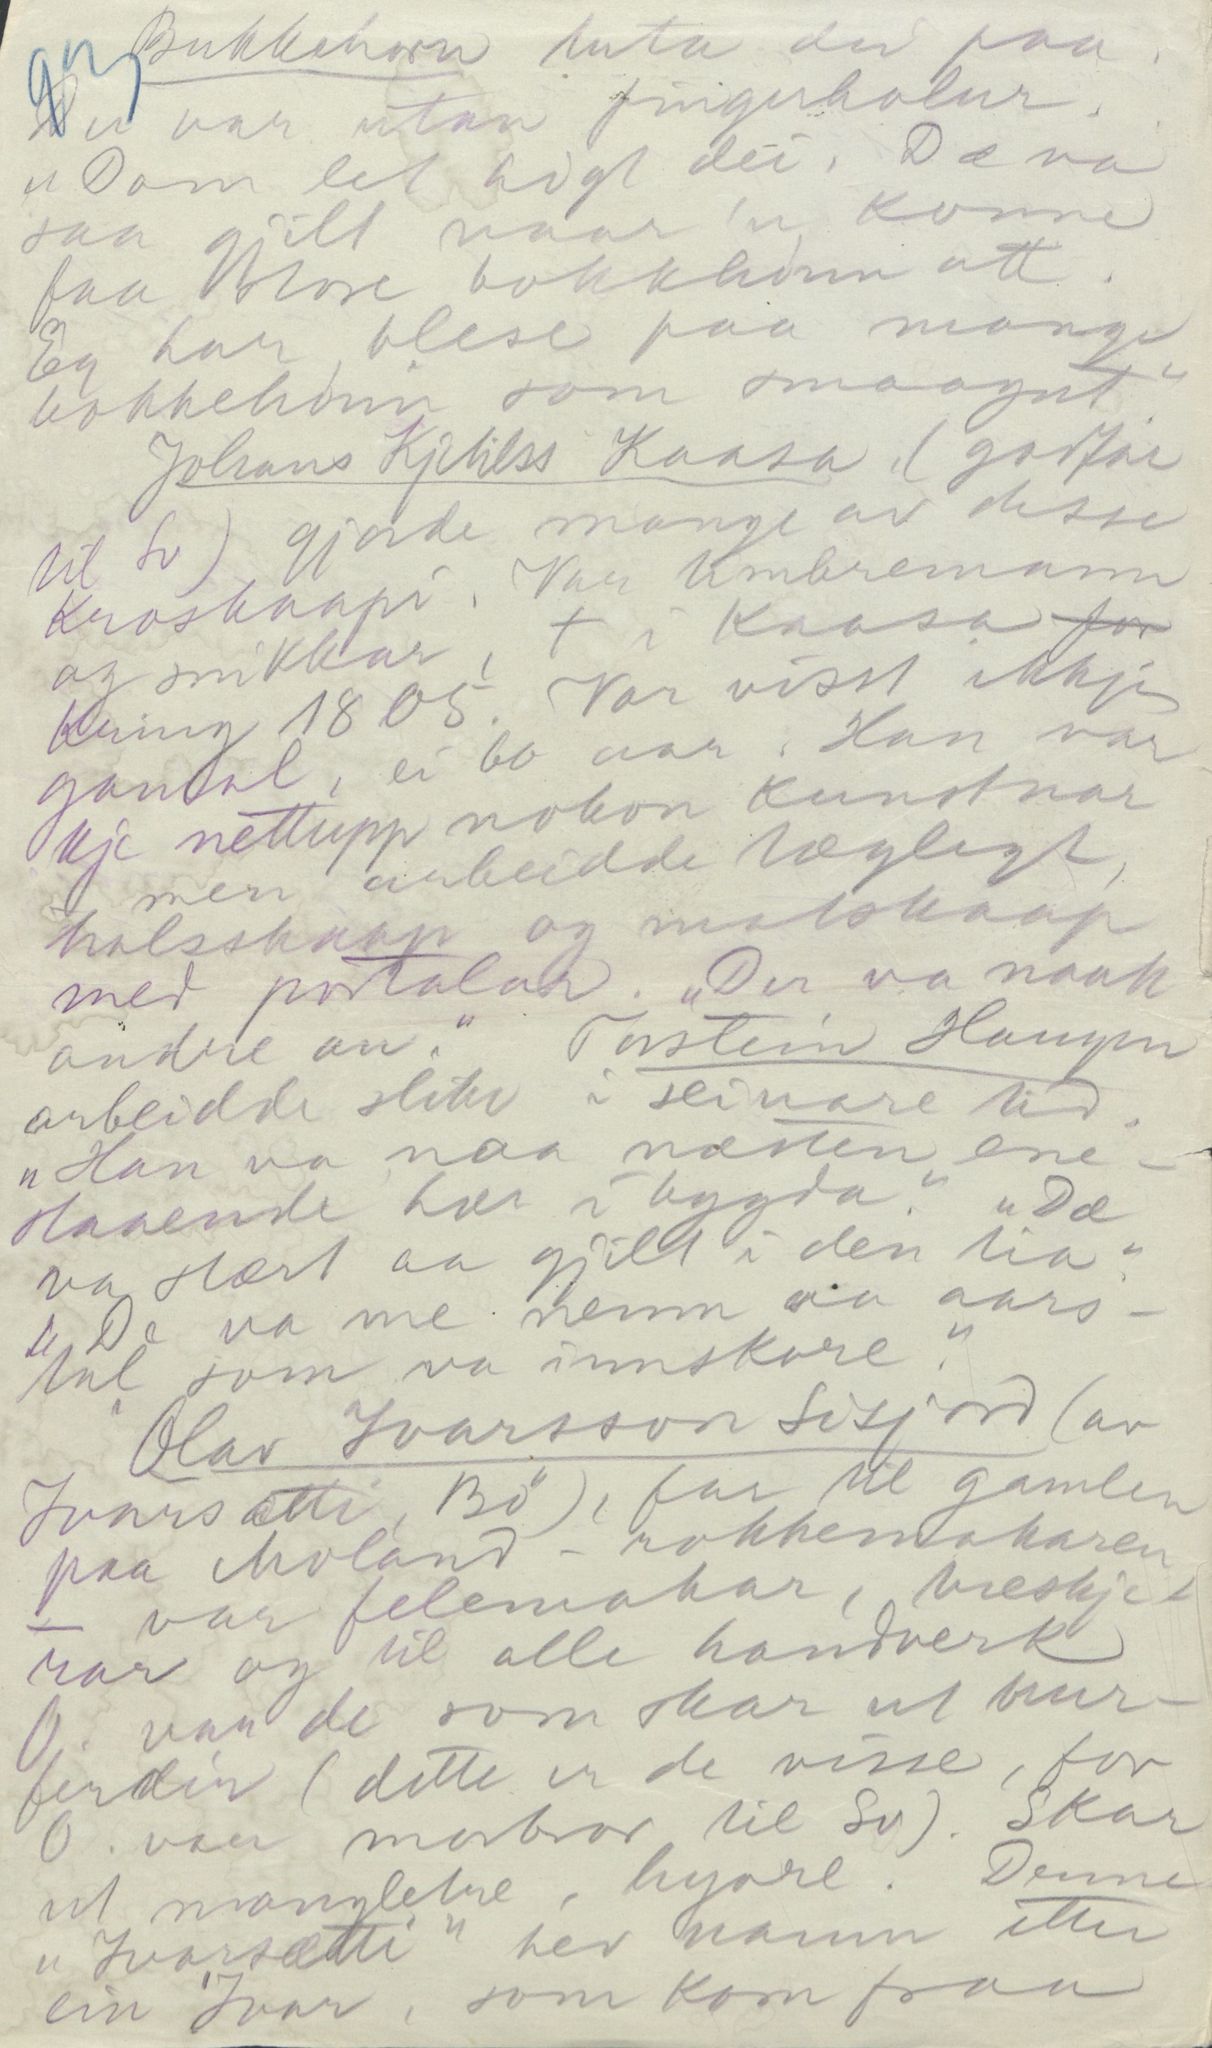 Bukkehorn tuta dei paa.
Dei var utan fingerholur.
"Dom let høgt dei. Dæ va
saa gjilt naar 'n konne
faa blose bokkhønn att.
Eg har blese paa mange
bokkehønn som smaagut".
Johans Kjetilss Kaasa, (godfar
til Sv) gjorde mange av desse
kroskaapi. Var timbremann
og snikkar, + i Kaasa for
kring 1805. Var visst ikkje
gamal, ei 60 aar. Han var
kje nettupp nokon kunstnar
men arbeidde tægleget,
halsskaap og matskaap
med portalar. "Der va naak
andre au." Torstein Haugen
arbeidde slike i seinare tid.
"Han va naa næsten ene-
staaende hær i bygda." "Dæ
va stært aa gjilt i den tia"
"Dæ va me nemn aa aars-
tal som va innskore."
Olav Ivarsson Sisjord (av
Ivarsætti, Bø), far til gamlen
paa Moland - rokkemakaren
- var felemakar, treskje-
rar og til alle handverk
O. var de som skar ut brur-
ferdir (dette er de visse, for
O. var morbror til Sv). Skar
ut mangletre, hyore. Denne
"Ivarsætti" hev namn etter
ein Ivar, som kom fraa